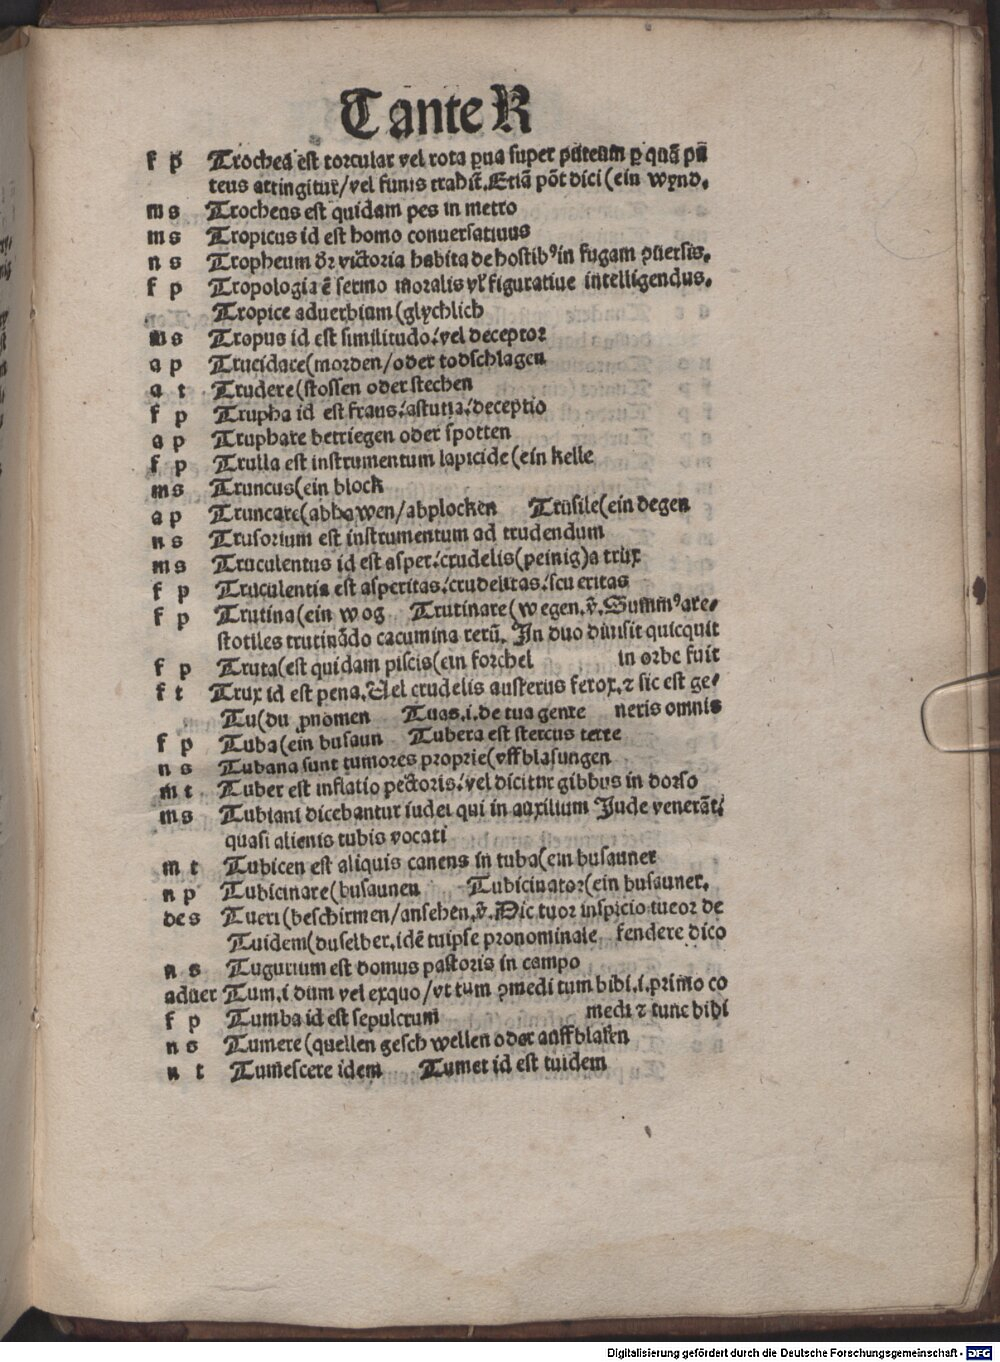 T ante R
f p Trochea est torcular vel rota ꝑua super puteum ꝑ quā pu
teus attingitur/vel funis tradit̄. Etiā pōt dici (ein wynd.
m s Trocheus est quidam pes in metro
m s Tropicus id est homo conuersatiuus
n s Tropheum dr̄ victoria habita de hostibꝰ in fugam ꝯuersis.
f p Tropologia ē sermo moralis vl' figuratiue intelligendus.
Tropice aduerbium (glychlich
m s Tropus id est similitudo:vel deceptor
a p Trucidare (morden/oder todschlagen
a t Trudere (stossen oder stechen
f p Trupha id est fraus:astutia:deceptio
a p Truphare betriegen oder spotten
f p Trulla est instrumentum lapicide (ein kelle
m s Truncus (ein block
a p Truncare (abhawen/abplocken Trusile (ein degen
n s Trusorium est instrumentum ad trudendum
m s Truculentus id est asper:crudelis (peinig) a trux
f p Truculentia est asperitas:crudelitas:seueritas
f p Trutina (ein wog Trutinare (wegen. v̄. Summꝰ are-
stotiles trutinādo cacumina rerū. In duo diuisit quicquit
f p Truta (est quidam piscis (ein forchel in orbe fuit
f t Trux id est pena. Uel crudelis austerus ferox. ⁊ sic est ge-
Tu (du ꝓnomen Tuas .i. de tua gente neris omnis
f p Tuba (ein busaun Tubera est stercus terre
n s Tubana sunt tumores proprie (vffblasungen
m t Tuber est inflatio pectoris:vel dicitur gibbus in dorso
m s Tubiani dicebantur iudei qui in auxilium Jude venerāt:
quasi alienis tubis vocati
m t Tubicen est aliquis canens in tuba (ein busauner
n p Tubicinare (busaunen Tubicinator (ein busauner.
de s Tueri (beschirmen/ansehen. v̄. Dic tuor inspicio tueor de
Tuidem (du selber. idē tuipse pronominale fendere dico
n s Tugurium est domus pastoris in campo
aduer Tum .i. dum vel exquo/vt tum ꝯmedi tum bibi .i. primo co
f p Tumba id est sepulcrum medi ⁊ tunc bibi
n s Tumere (quellen geschwellen oder auffblasen
n t Tumescere idem Tumet id est tuidem
Digitalisierung gefördert durch die Deutsche Forschungsgemeinschaft - DFG